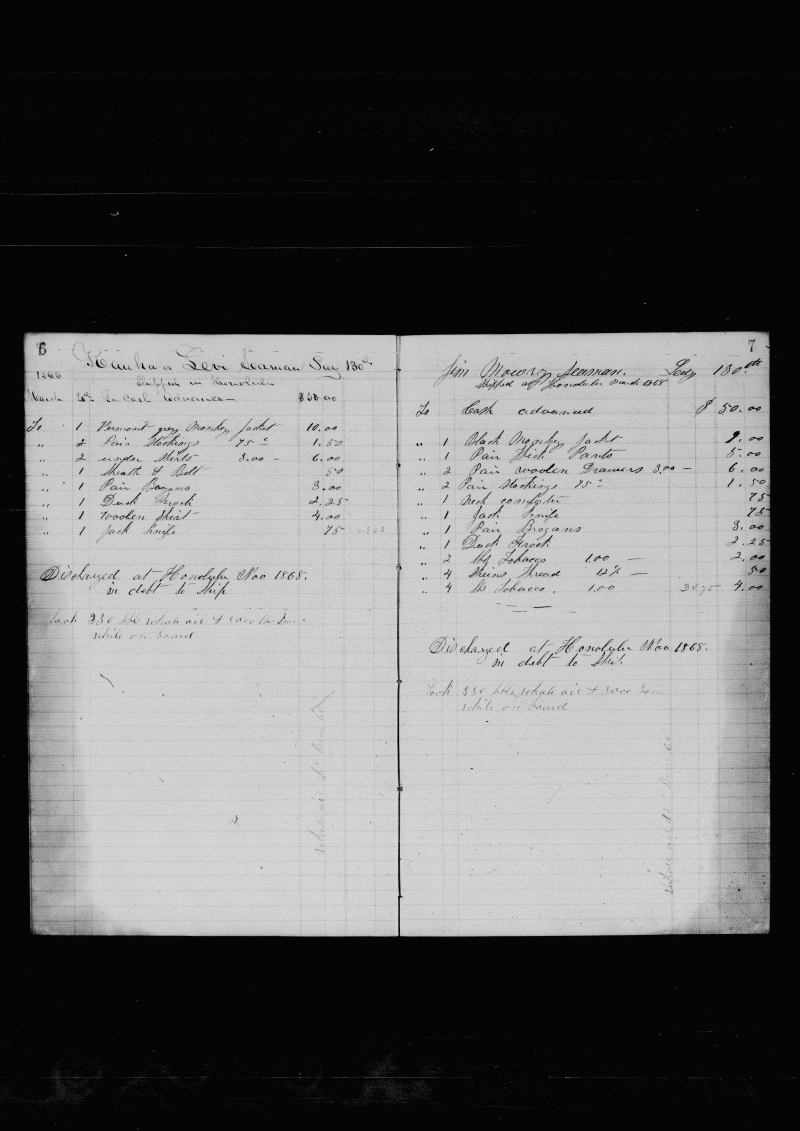 6
Levi Seaman Lay 130th
1868 Shipped in Honolulu
March To Cash advanced $50.00
To 1 Vermont grey Monkey Jacket 10.00
" 2 Pair Stockings 75 c 1.50
" 2 under Shirts 3.00 – 6.00
" 1 Sheath & Belt 50
" 1 Pair Brogans 3.00
" 1 Duck Frock 2.25
" 1 Woolen Shirt 4.00
" 1 Jack Knife 75
Discharged at Honolulu Nov 1868.
in debt to Ship
Took 330 bbls whale oil & 3000 lbs
while on board
7
Jim Mowry Seaman. Lay 130th
Shipped at Honolulu March 1868
To Cash advanced $ 50.00
" 1 Black Monkey Jacket 9.00
" 1 Pair Thick Pants 5.00
" 2 Pair woolen Drawers 3.00 – 6.00
" 2 Pair Stockings 75 c 1.50
" 1 Neck comforter 75
" 1 Jack Knife 75
" 1 Pair Brogans 3.00
" 1 Duck Frock 2.25
" 2 lbs Tobacco 1.00 – 2.00
" 4 Skeins Thread 12½ – 50
" 4 lbs Tobacco. 1.00 34.75 4.00
Discharged at Honolulu Nov 1868.
in debt to Ship.
Took 330 bbls whale oil & 3000
while on board